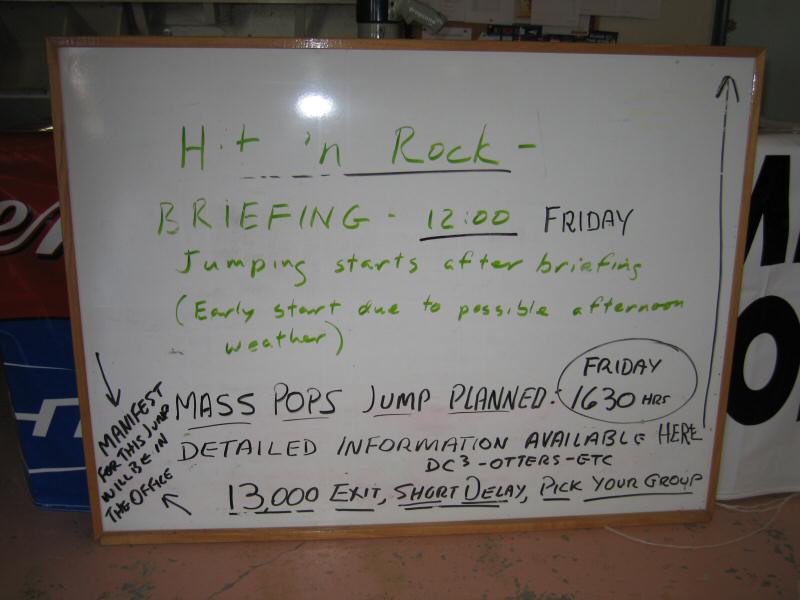 Hit 'n Rock -
BRIEFING - 12:00 FRIDAY
Jumping starts after briefing
(Early start due to possible afternoon
weather)
MASS POPS JUMP PLANNED:
FRIDAY
1630 HRS
DETAILED INFORMATION AVAILABLE HERE
DC3-OTTERS-ETC
13,000 EXIT, SHORT DELAY, PICK YOUR GROUP
MANIFEST
FOR THIS JUMP
WILL BE IN
THE OFFICE